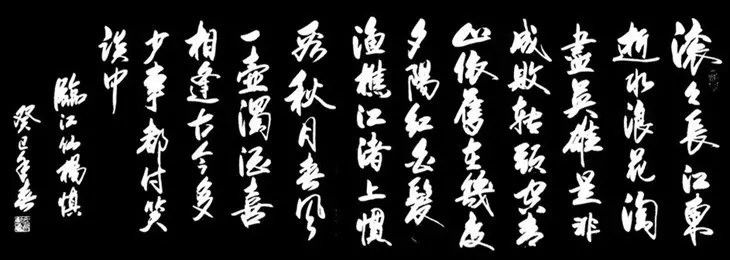 滚々長江東
逝水浪花淘
盡英雄是非
成敗轉頭空青
山依舊在幾度
夕陽紅白髮
漁樵江渚上慣
看秋月春風
一壺濁酒喜
相逢古今多
少事都付笑
談中
臨江仙楊慎
癸巳年春